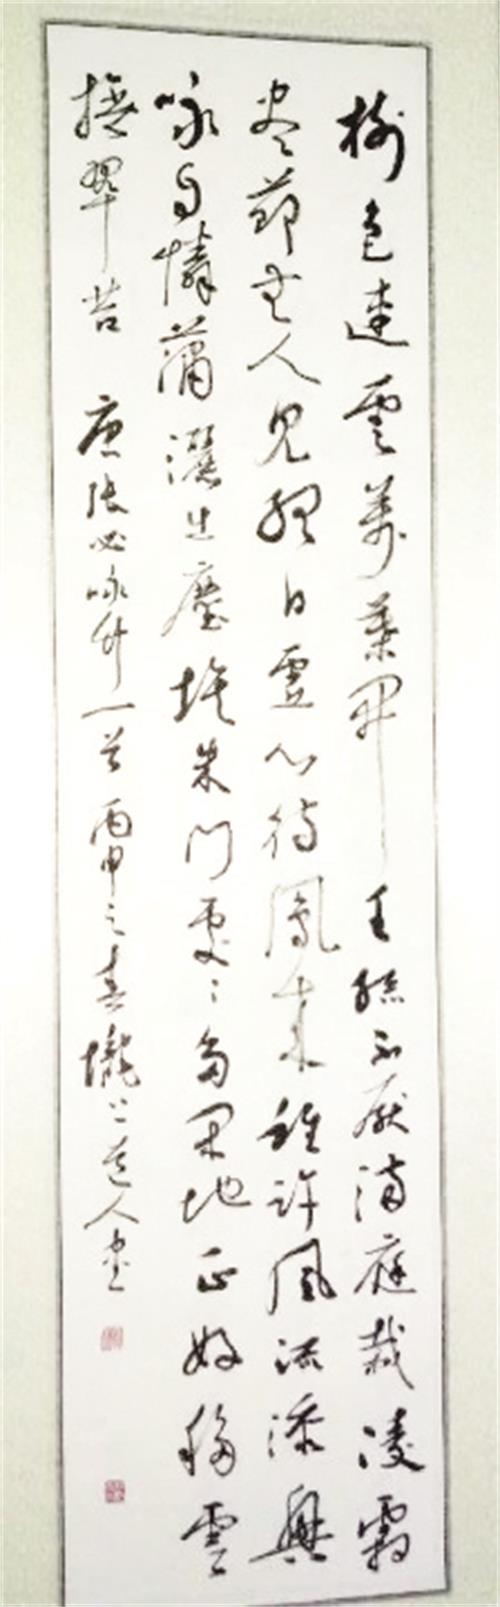 樹色連雲萬葉開王孫不厭滿庭栽凌霜
尽節無人見終日虛心待鳳來誰許風流添興
詠自憐蕭灑出塵埃朱門處々多閑地正好移雲
撫翠苔 唐張必詠竹一首 丙申之春壠上道人書